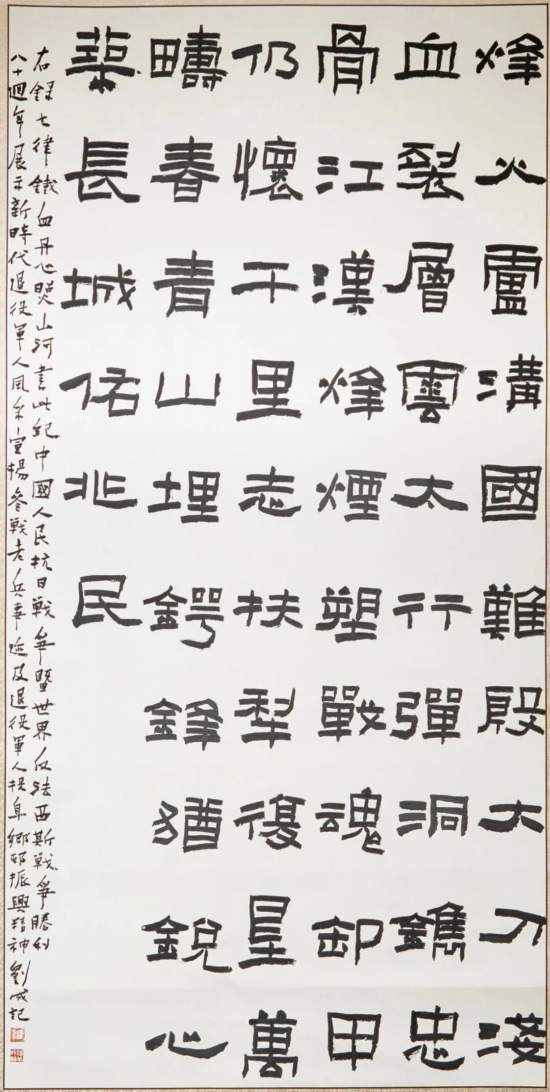 烽火盧溝國難殷大刀
血裂層雲太行彈洞鐫忠
骨江漢烽煙塑戰魂卸甲
仍懷千里志扶犁復垦萬
疇春青山埋鍔鋒猶銳心
築長城佑兆民
右録七律鐵血丹心照山河書此紀中國人民抗日戰爭暨世界反法西斯戰爭勝利
八十週年展示新時代退役軍人風采宣揚參戰老兵事迹及退役軍人投身鄉邨振興精神劉成記